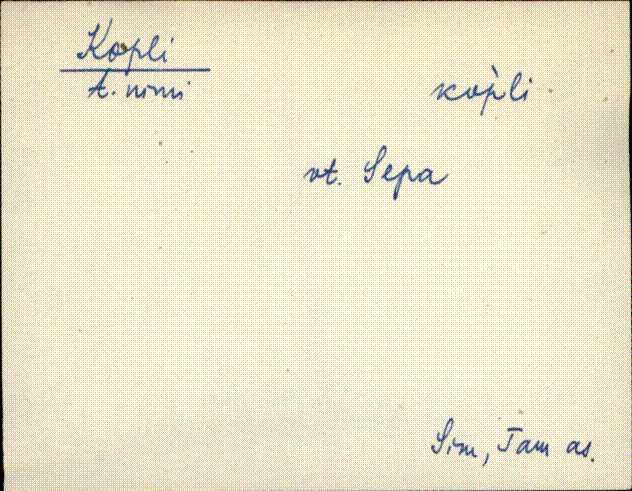 Kopli
t. nimi
kop̀li
vt. Sepa
Sim, Tam as.